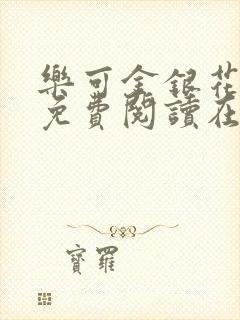 樂可金銀花
免費閱讀在
寶羅